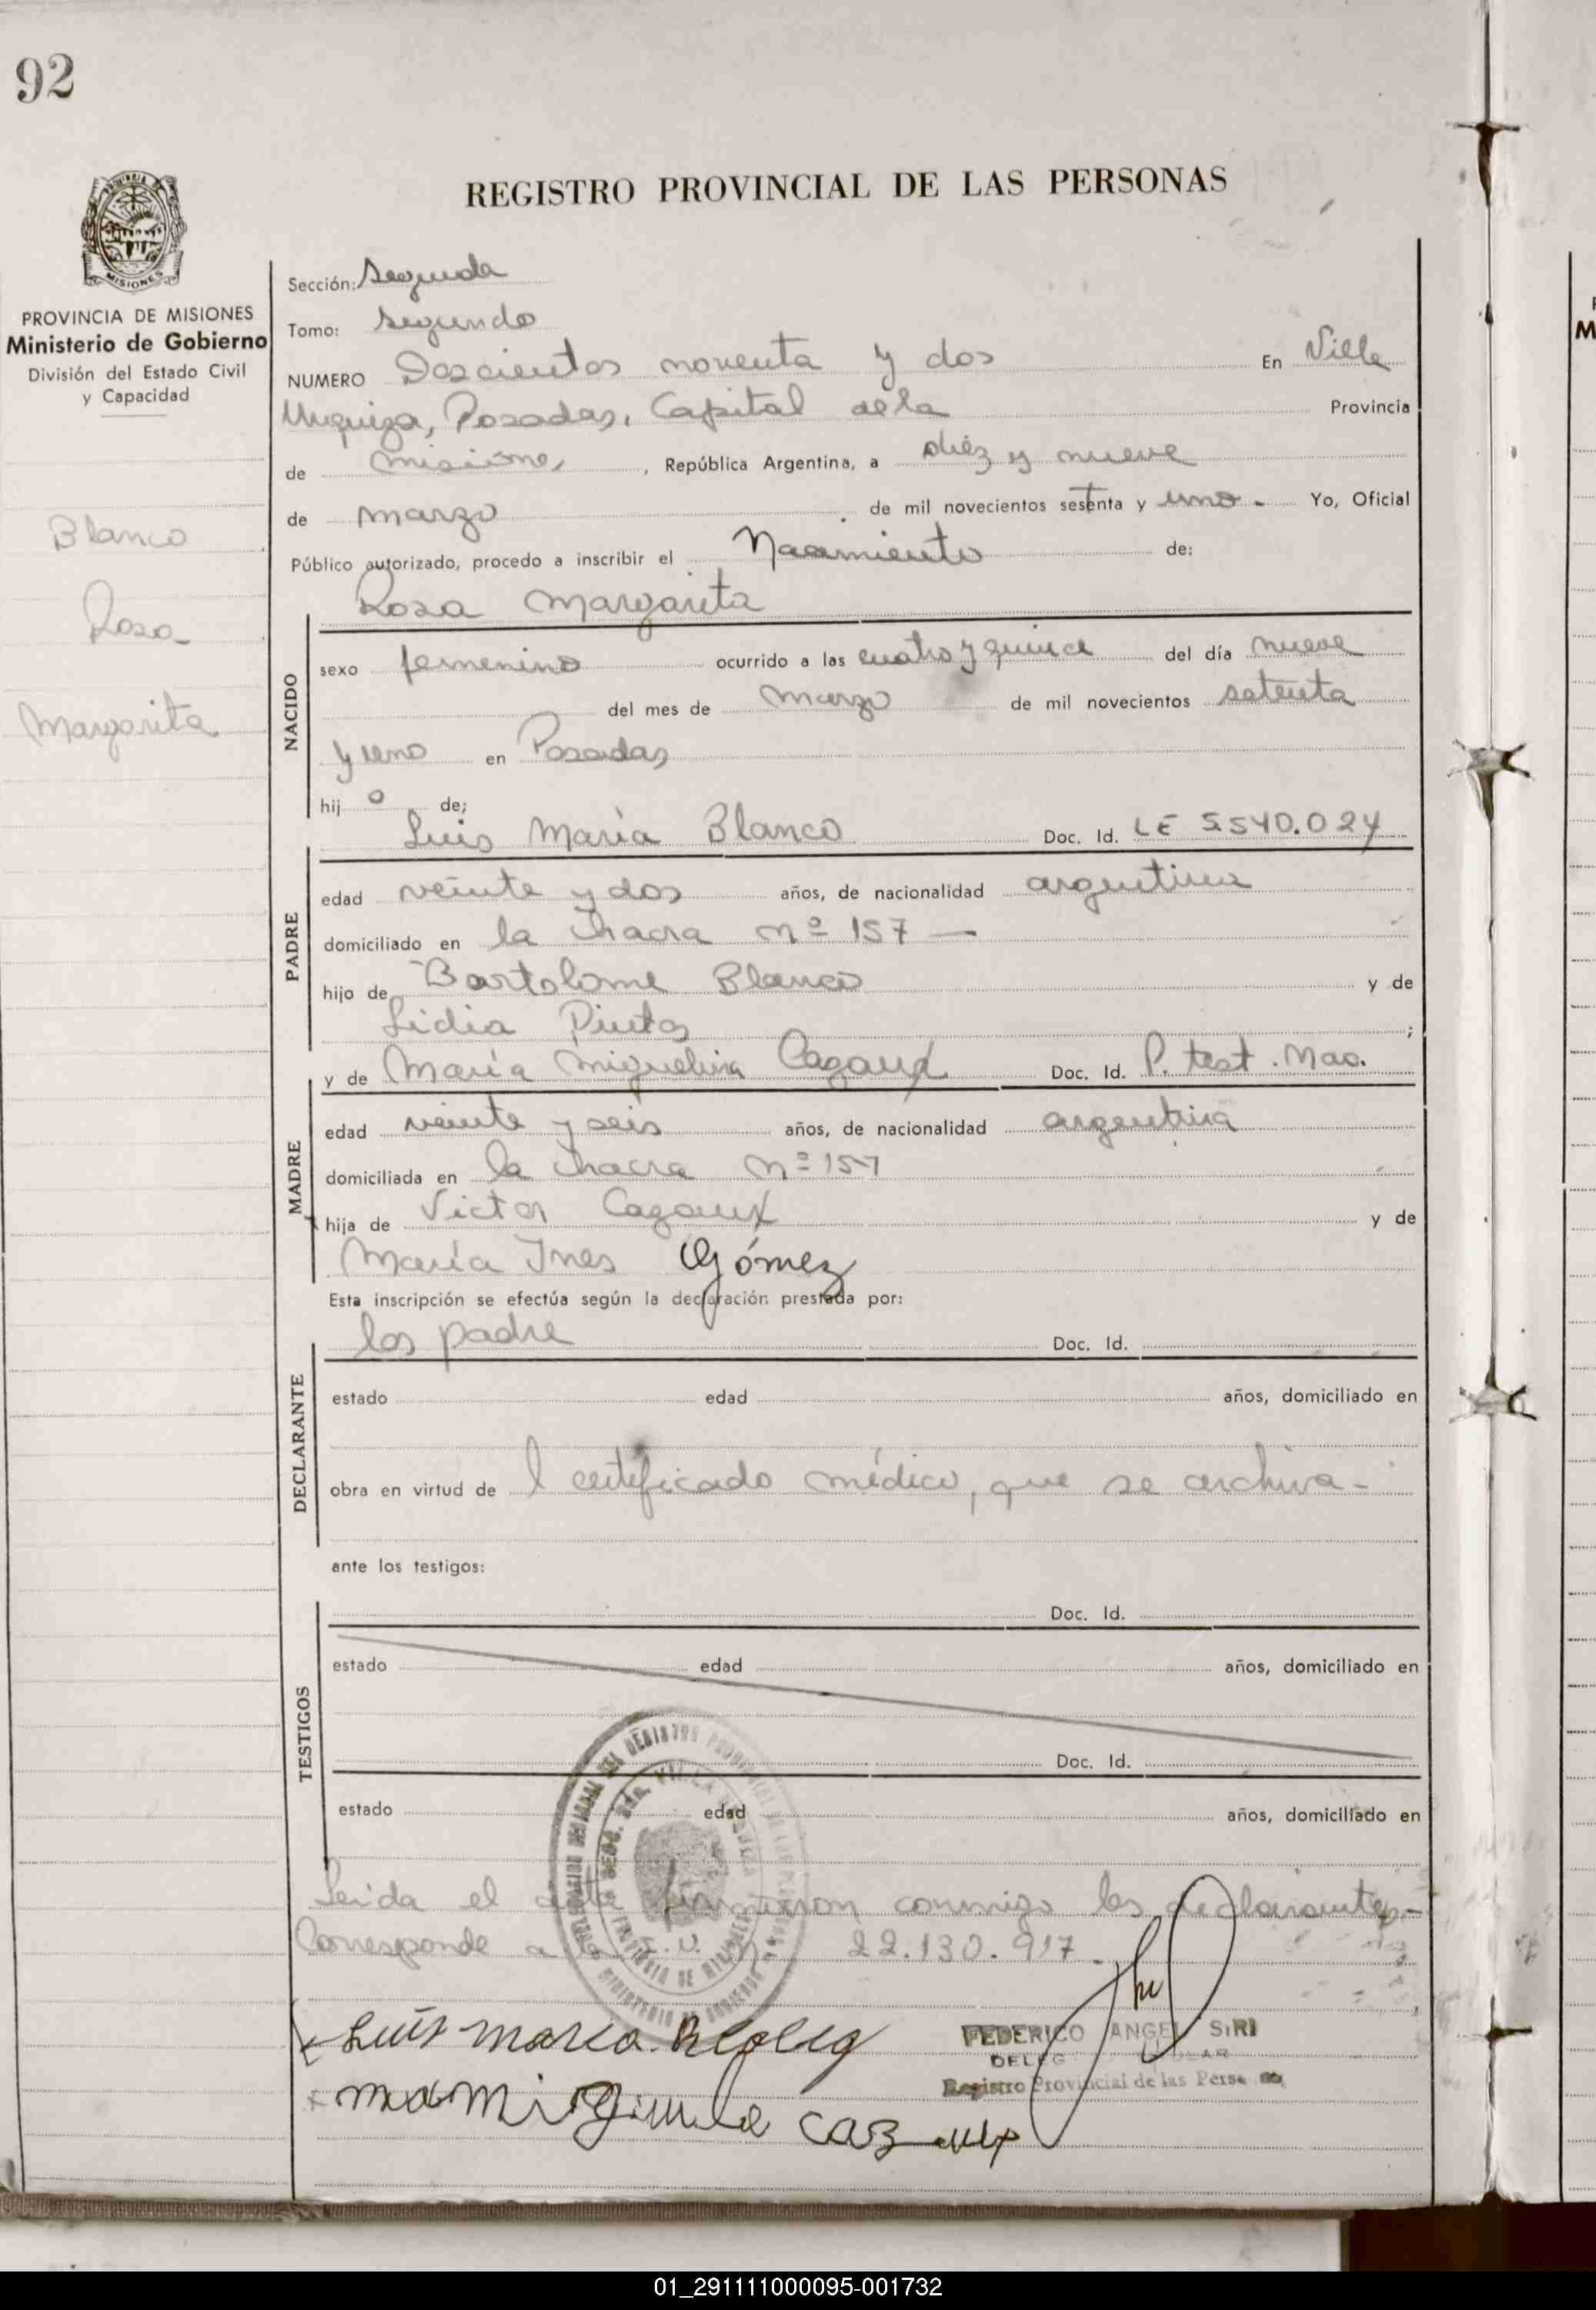 92
REGISTRO PROVINCIAL DE LAS PERSONAS
MISIONES
PROVINCIA DE MISIONES
Ministerio de Gobierno
División del Estado Civil
y Capacidad
Blanco
Rosa
Margarita
Sección: Segunda
Tomo: Segundo
NUMERO Doscientos noventa y dos En Villa
Urquiza, Posadas, Capital de la Provincia
de Misiones, República Argentina, a diéz y nueve
de marzo de mil novecientos setenta y uno - Yo, Oficial
Público autorizado, procedo a inscribir el Nacimiento de:
Rosa Margarita
NACIDO
sexo femenino ocurrido a las cuatro y quince del día nueve
del mes de marzo de mil novecientos setenta
y uno en Posadas
hij o de;
Luis María Blanco Doc. Id. LE 5.540.024
PADRE
edad veinte y dos años, de nacionalidad argentina
domiciliado en la chacra nº 157 —
hijo de Bartolome Blanco y de
Lidia Pintos ;
y de María Miguelina Cazaux Doc. Id. P. test. Nac.
MADRE
edad veinte y seis años, de nacionalidad argentina
domiciliada en la chacra nº 157
hija de Victor Cazaux y de
María Ines Gómez
Esta inscripción se efectúa según la declaración prestada por:
los padre Doc. Id.
DECLARANTE
estado edad años, domiciliado en
obra en virtud de l certificado médico, que se archiva -
ante los testigos:
Doc. Id.
TESTIGOS
estado edad años, domiciliado en
Doc. Id.
estado edad años, domiciliado en
Leida el acta firmaron conmigo los declarantes -
Corresponde a 22.130.917
Luis Maria
FEDERICO ANGEL SIRI
Registro Provincial de las Perso
01_291111000095-001732